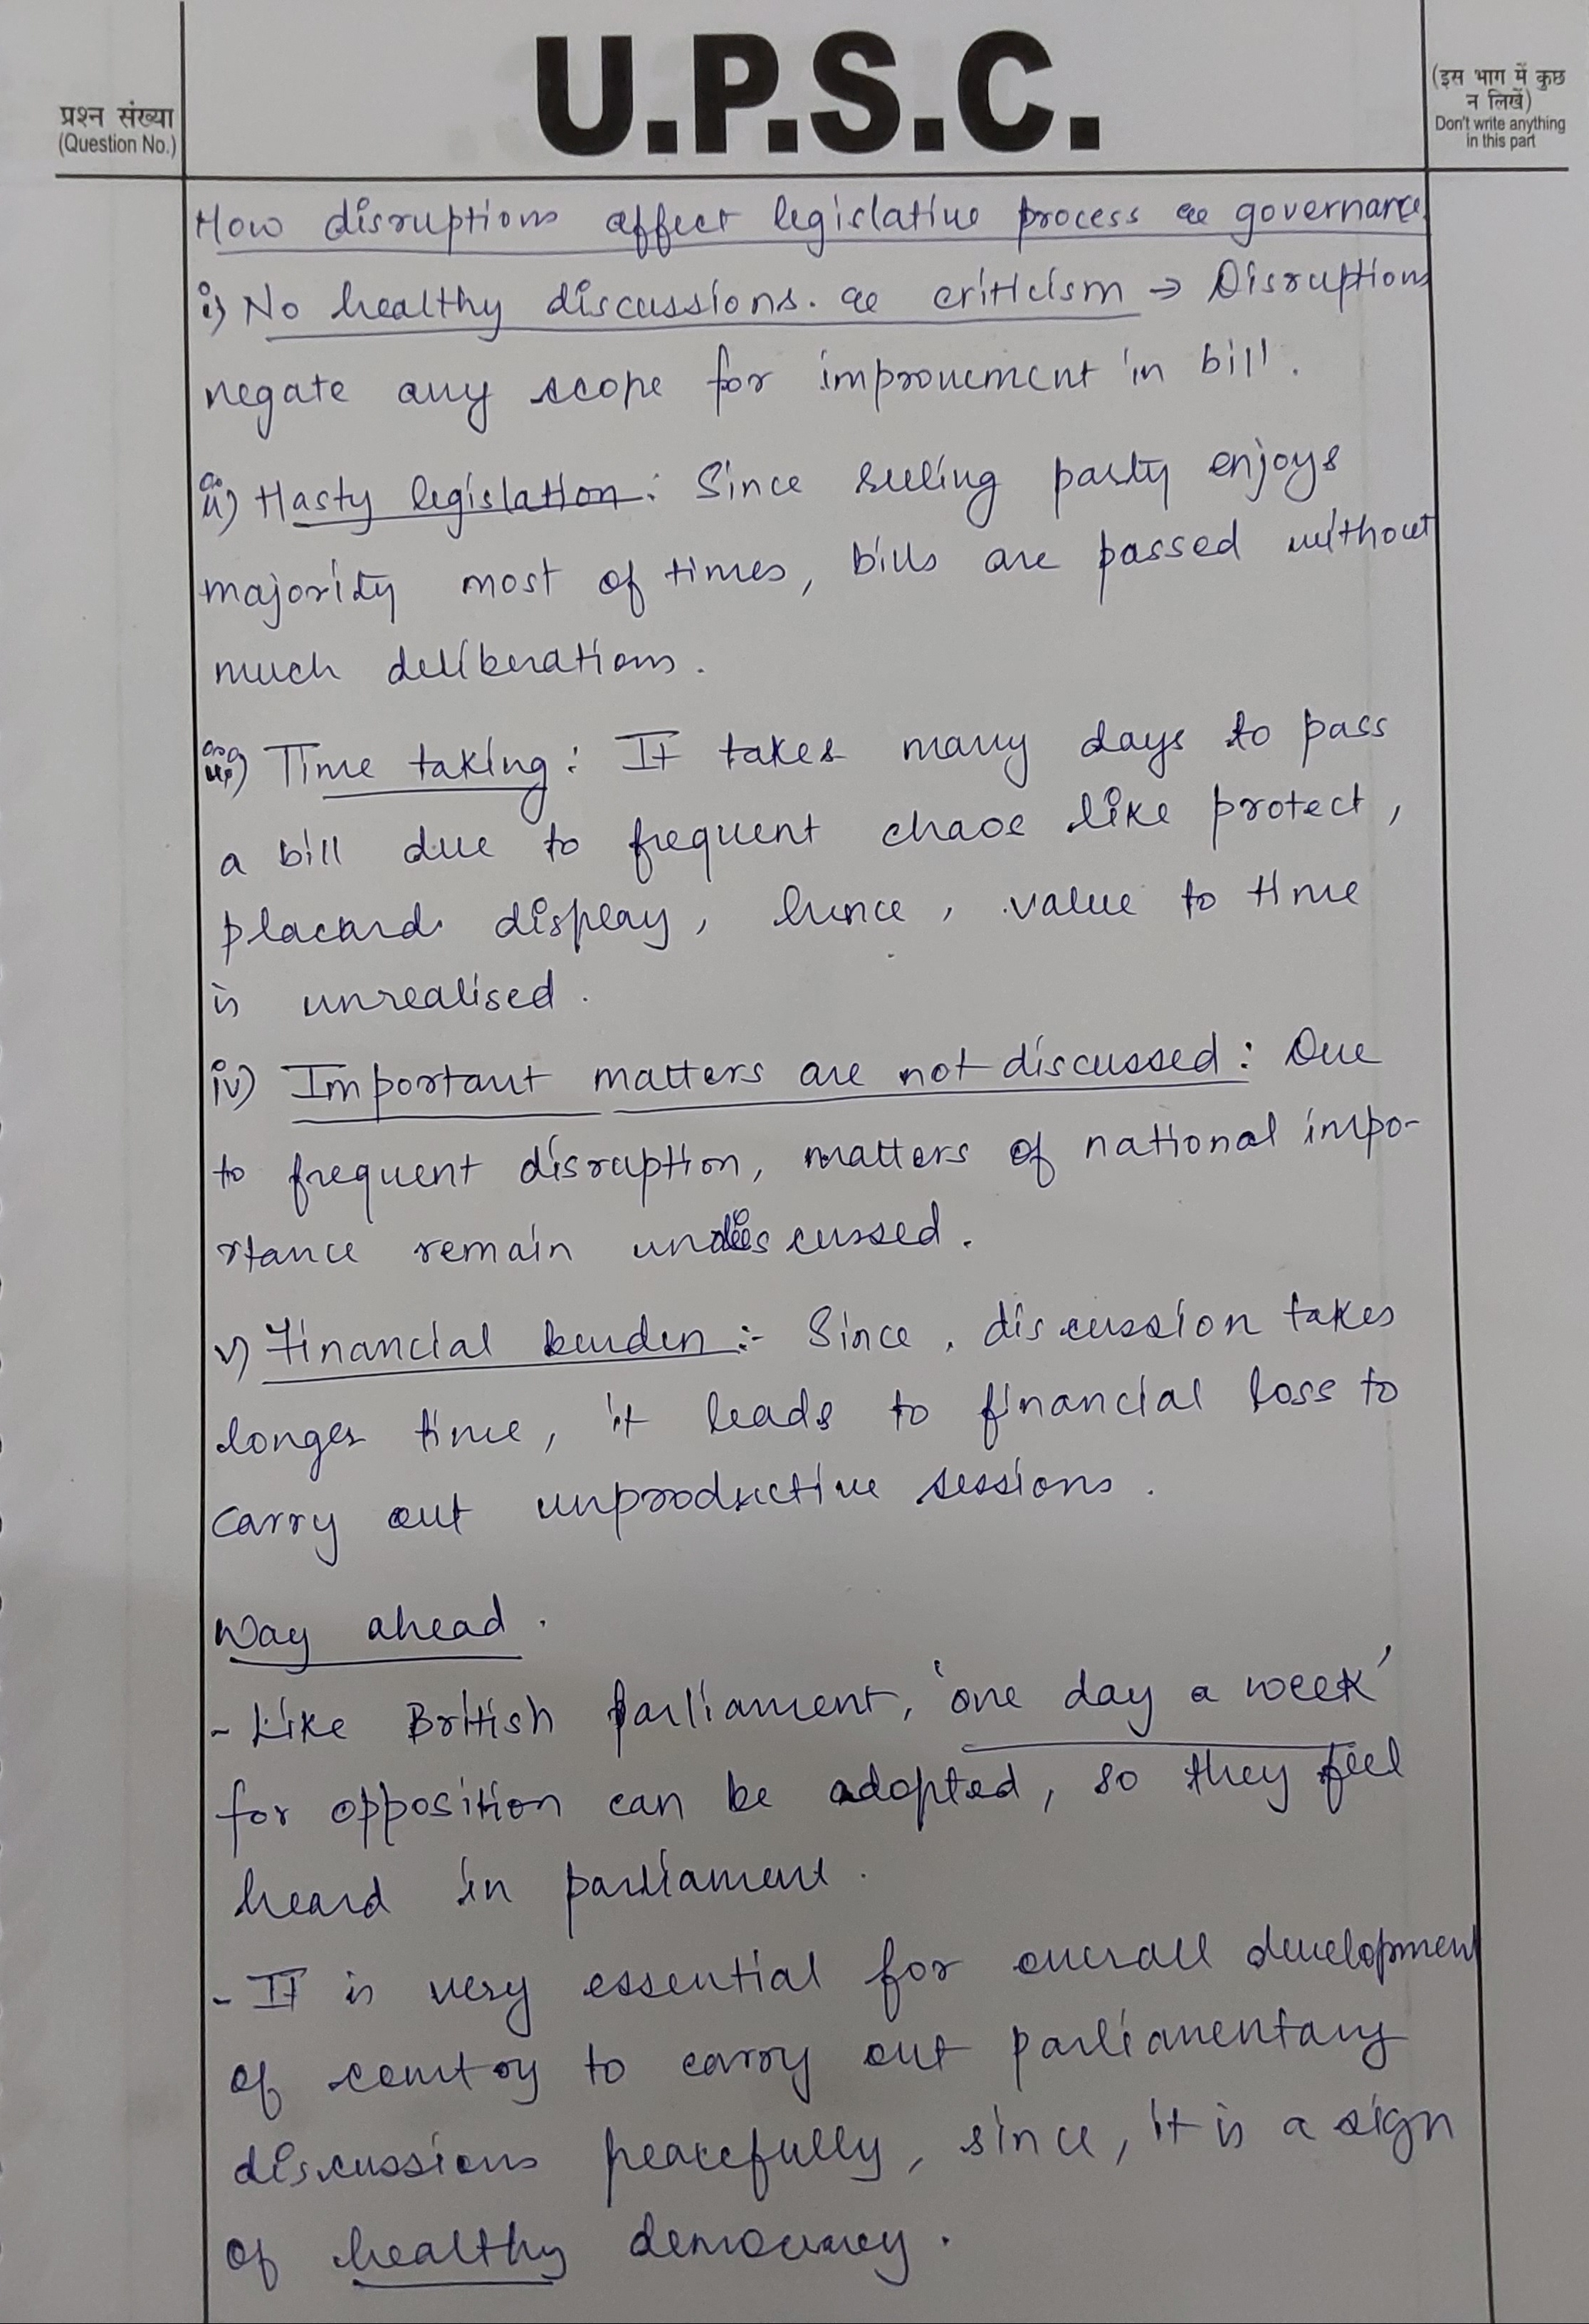 U.P.S.C.
प्रश्न संख्या
(Question No.)
(इस भाग में कुछ
न लिखें)
Don't write anything
in this part
How disruptions affect legislative process & governance
i) No healthy discussions. & criticism → Disruptions
negate any scope for improvement in bill.
ii) Hasty legislation: Since ruling party enjoys
majority most of times, bills are passed without
much deliberations.
iii) Time taking: It takes many days to pass
a bill due to frequent chaos like protect,
placard display, hence, value to time
is unrealised.
iv) Important matters are not discussed: Due
to frequent disruption, matters of national impo-
rtance remain undiscussed.
v) Financial burden :- Since, discussion takes
longer time, it leads to financial loss to
carry out unproductive sessions.
Way ahead.
- Like British parliament, 'one day a week'
for opposition can be adopted, so they feel
heard in parliament.
- It is very essential for overall development
of country to carry out parliamentary
discussions peacefully, since, it is a sign
of healthy democracy.